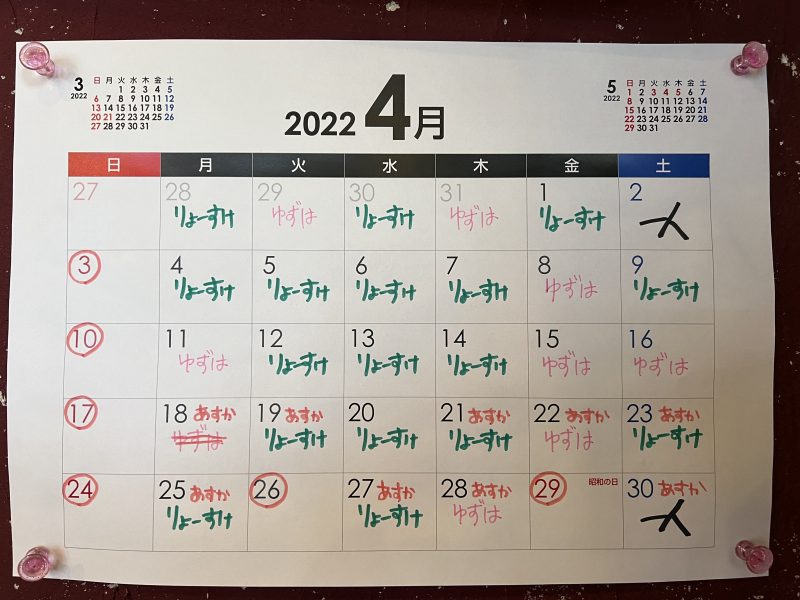 3
2022
日 月 火 水 木 金 土
1 2 3 4 5
6 7 8 9 10 11 12
13 14 15 16 17 18 19
20 21 22 23 24 25 26
27 28 29 30 31
2022 4月
5
2022
日 月 火 水 木 金 土
1 2 3 4 5 6 7
8 9 10 11 12 13 14
15 16 17 18 19 20 21
22 23 24 25 26 27 28
29 30 31
日 月 火 水 木 金 土
27 28 29 30 31 1 2
りょーすけ ゆずは りょーすけ ゆずは りょーすけ
3 4 5 6 7 8 9
りょーすけ りょーすけ りょーすけ りょーすけ ゆずは りょーすけ
10 11 12 13 14 15 16
ゆずは りょーすけ りょーすけ りょーすけ ゆずは ゆずは
17 18 あすか 19 あすか 20 21 あすか 22 あすか 23 あすか
ゆずは りょーすけ りょーすけ りょーすけ ゆずは りょーすけ
24 25 あすか 26 27 あすか 28 あすか 29 昭和の日 30 あすか
りょーすけ りょーすけ ゆずは